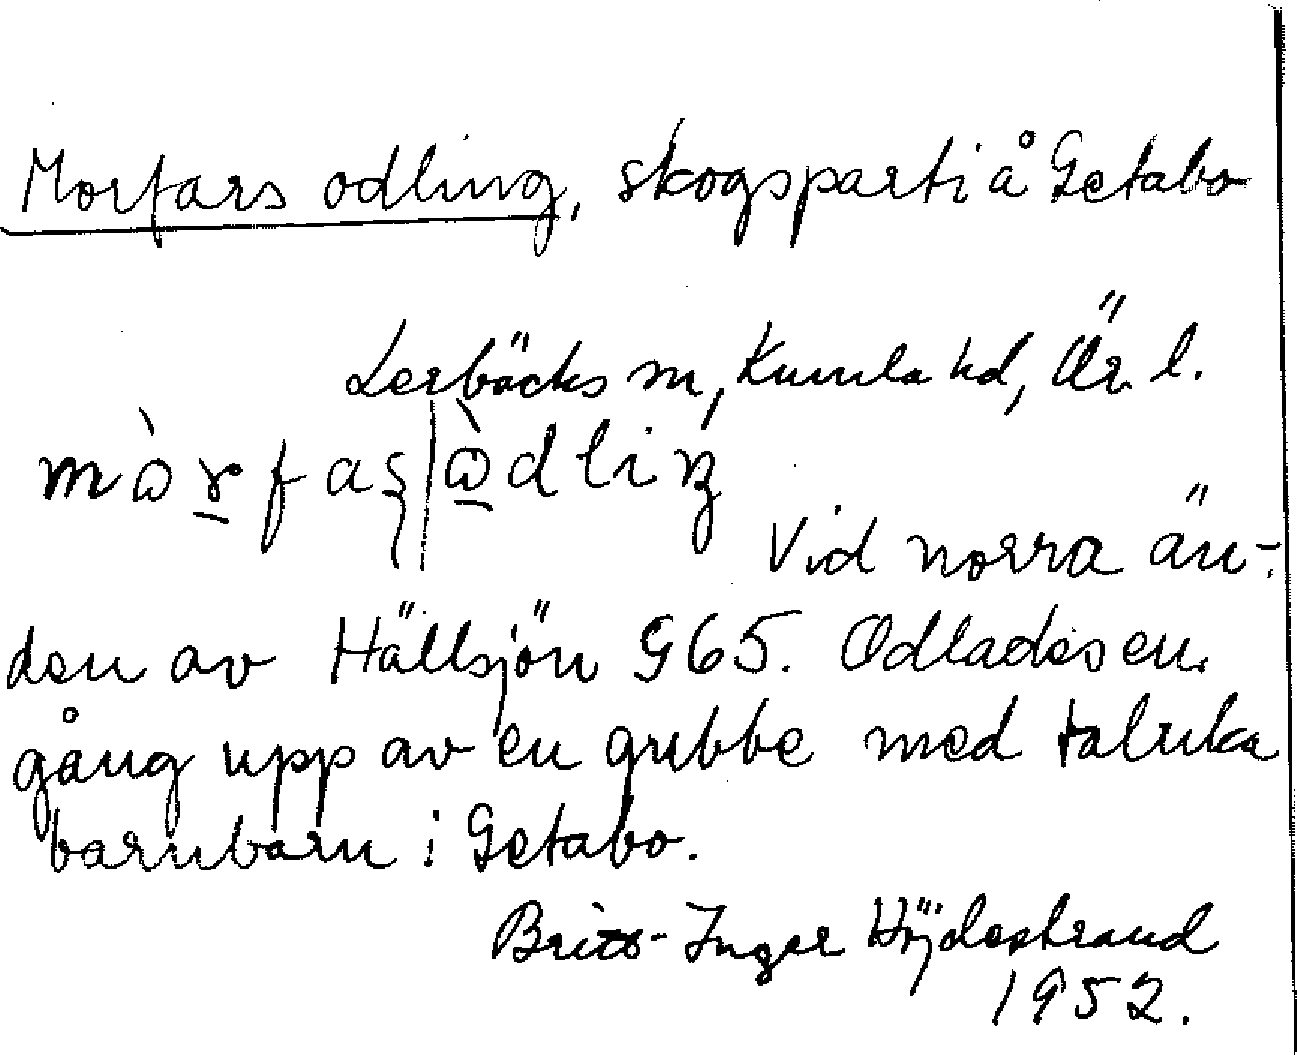 Morfars odling, skogsparti å Getabo
Lerbäcks sn, Kumla hd, Ör. l.
Vid norra än-
den av Hällsjön G65. Odlades en
gång upp av en gubbe med talrika
barnbarn i Getabo.
Britt-Inger Höjdestrand
1952.